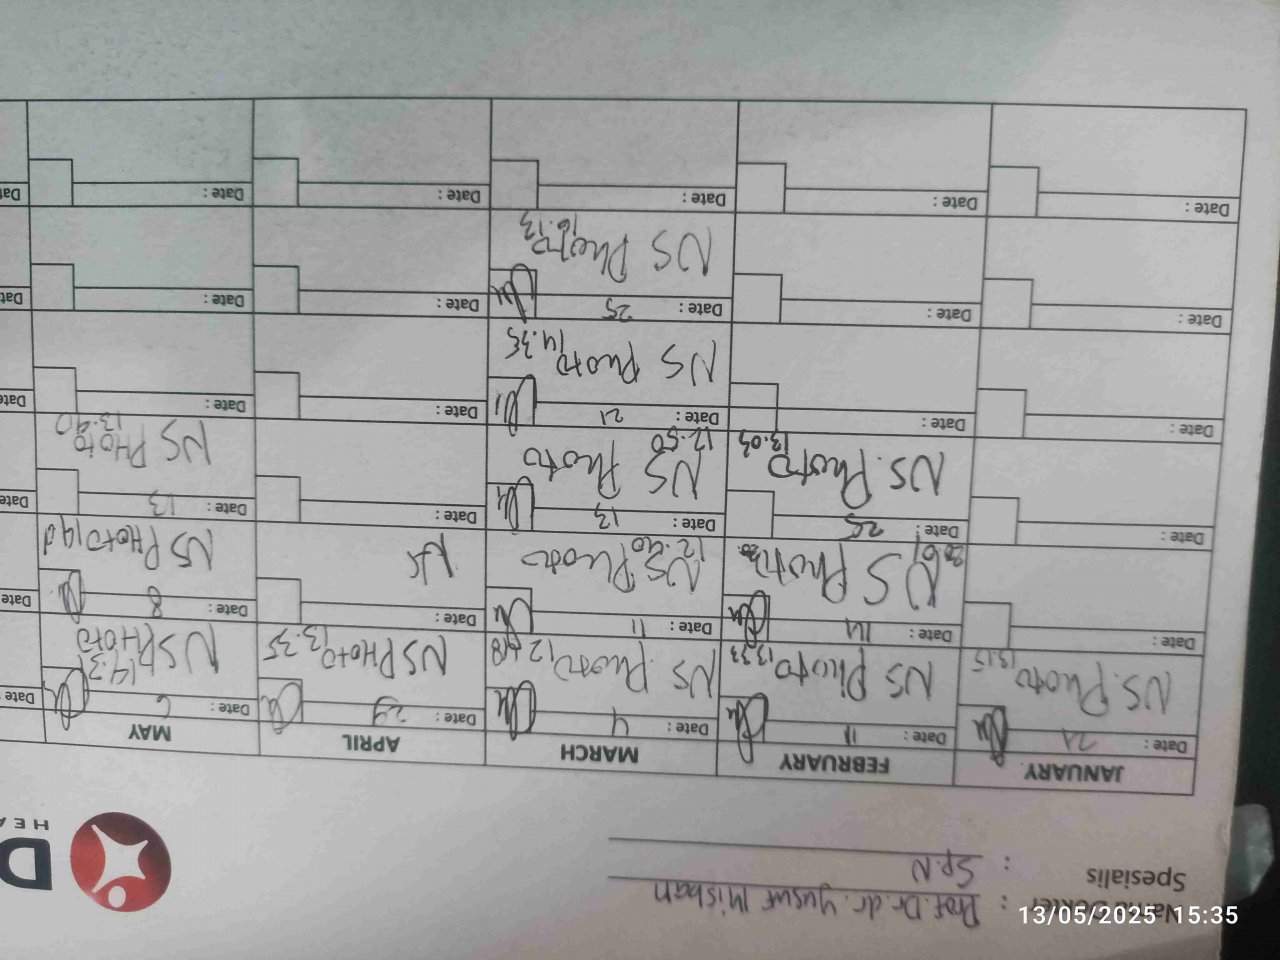 Nama Dokter : Prof. Dr. dr. Yusuf Misbah
Spesialis : Sp.N
HEA
JANUARY FEBRUARY MARCH APRIL MAY
Date : 21 Date : 11 Date : 4 Date : 29 Date : 6 Date
NS. Photo 13.15 NS Photo 13.33 NS. Photo 12.48 NS PHOTO 13.35 NS PHOTO 14.31
Date : Date : 14 Date : 11 Date : Date : 8 Date
NS Photo NS Photo 12.40 NS NS PHOTO
Date : Date : 25 Date : 13 Date : Date : 13 Date
NS. Photo 13.03 NS Photo 12.50 NS PHOTO 13.40
Date : Date : Date : 21 Date : Date : Date
NS Photo 14.35
Date : Date : Date : 25 Date : Date : Date
NS Photo 16.13
Date : Date : Date : Date : Date : Date
13/05/2025 15:35